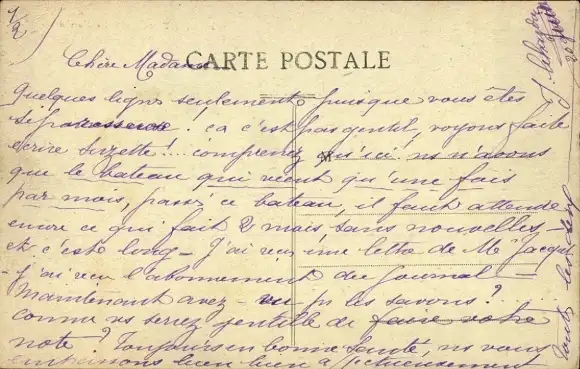 1/2
CARTE POSTALE
Chère Madame
Quelques lignes seulement puisque vous êtes
si paresseuse! ça c'est pas gentil, voyons faite
écrire Suzette!... comprenez qu'ici ns n'avons
que le bateau qui vient qu'une fois
par mois, passé ce bateau, il faut attendre
encore ce qui fait 2 mois, sans nouvelles,
et c'est long - J'ai reçu une lettre de Me Jacq
- J'ai reçu l'abonnement du journal -
Maintenant avez-vu pr les savons?...
comme vs seriez gentille de faire votre
note? Toujours en bonne santé, ns vous
embrassons bien bien affectueusement
20